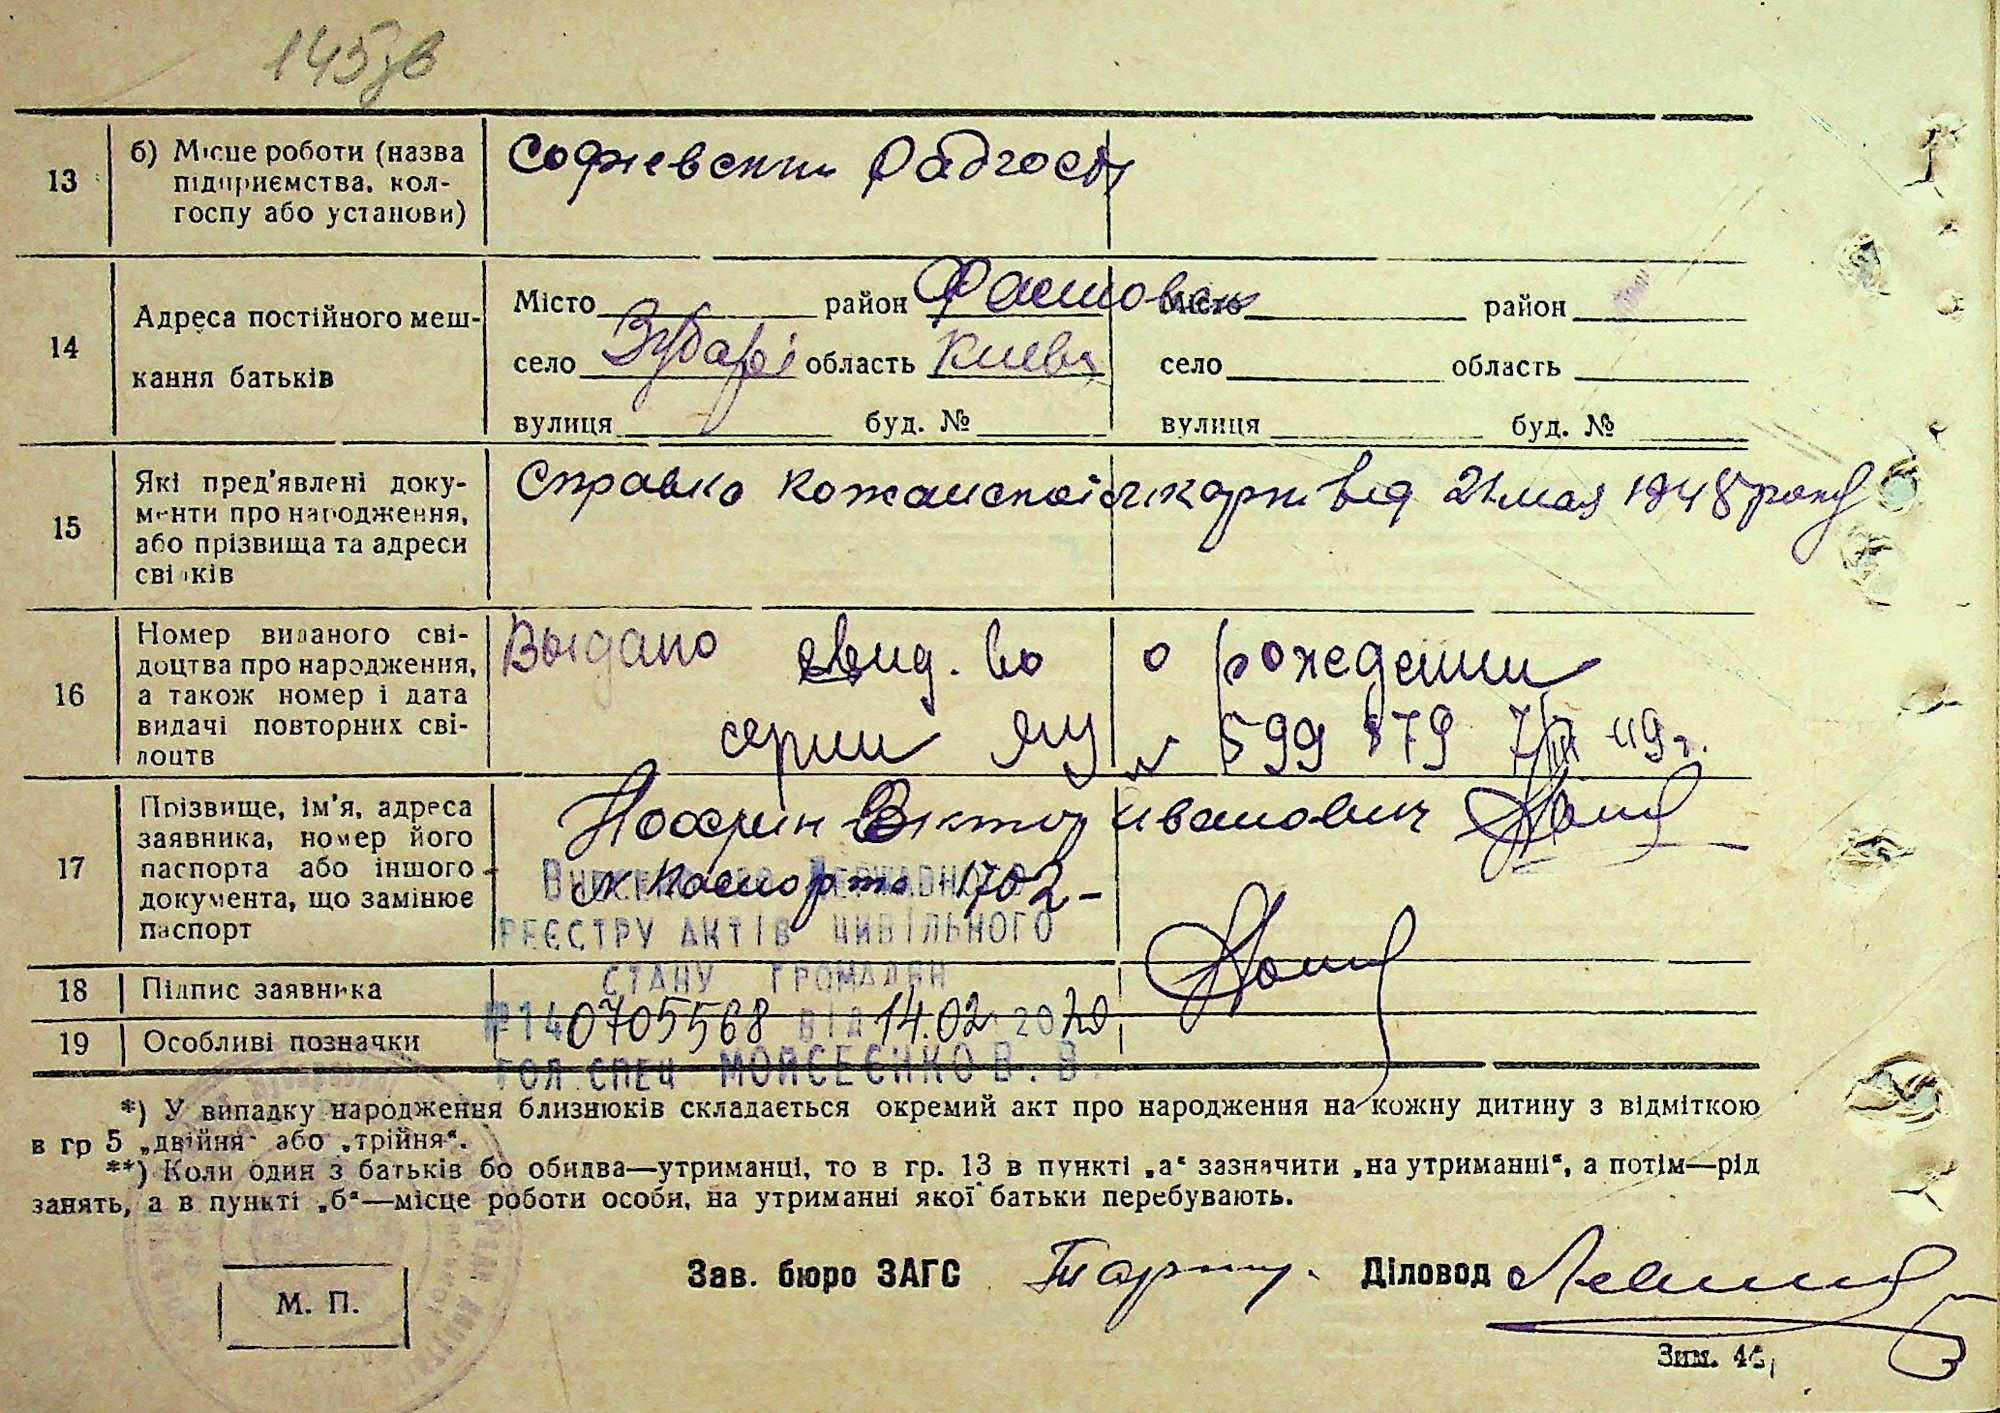 145зв
13
б) Місце роботи (назва
підприємства, кол-
госпу або установи)
Софиевский Радгосп
14
Адреса постійного меш-
кання батьків
Місто район Фастовск
село Зубарі область Киевск
вулиця буд. №
Місто район
село область
вулиця буд. №
15
Які пред'явлені доку-
менти про народження,
або прізвища та адреси
свідків
Справка від 21 мая 1948 року
16
Номер виданого сві-
доцтва про народження,
а також номер і дата
видачі повторних сві-
доцтв
Выдано свид. во о рождении
серии № 599 879 49 г.
17
Прізвище, ім'я, адреса
заявника, номер його
паспорта або іншого
документа, що замінює
паспорт
Віктор Иванович
1702 –
Державного
реєстру актів цивільного
стану громадян
№140705568 від 14.02 2020
гол спец Мойсеєнко В. В.
18
Підпис заявника
19
Особливі позначки
*) У випадку народження близнюків складається окремий акт про народження на кожну дитину з відміткою
в гр 5 „двійня" або „трійня".
**) Коли один з батьків бо обидва—утриманці, то в гр. 13 в пункті „а" зазначити „на утриманні", а потім—рід
занять, а в пункті „б"—місце роботи особи, на утриманні якої батьки перебувають.
Зав. бюро ЗАГС
Діловод
М. П.